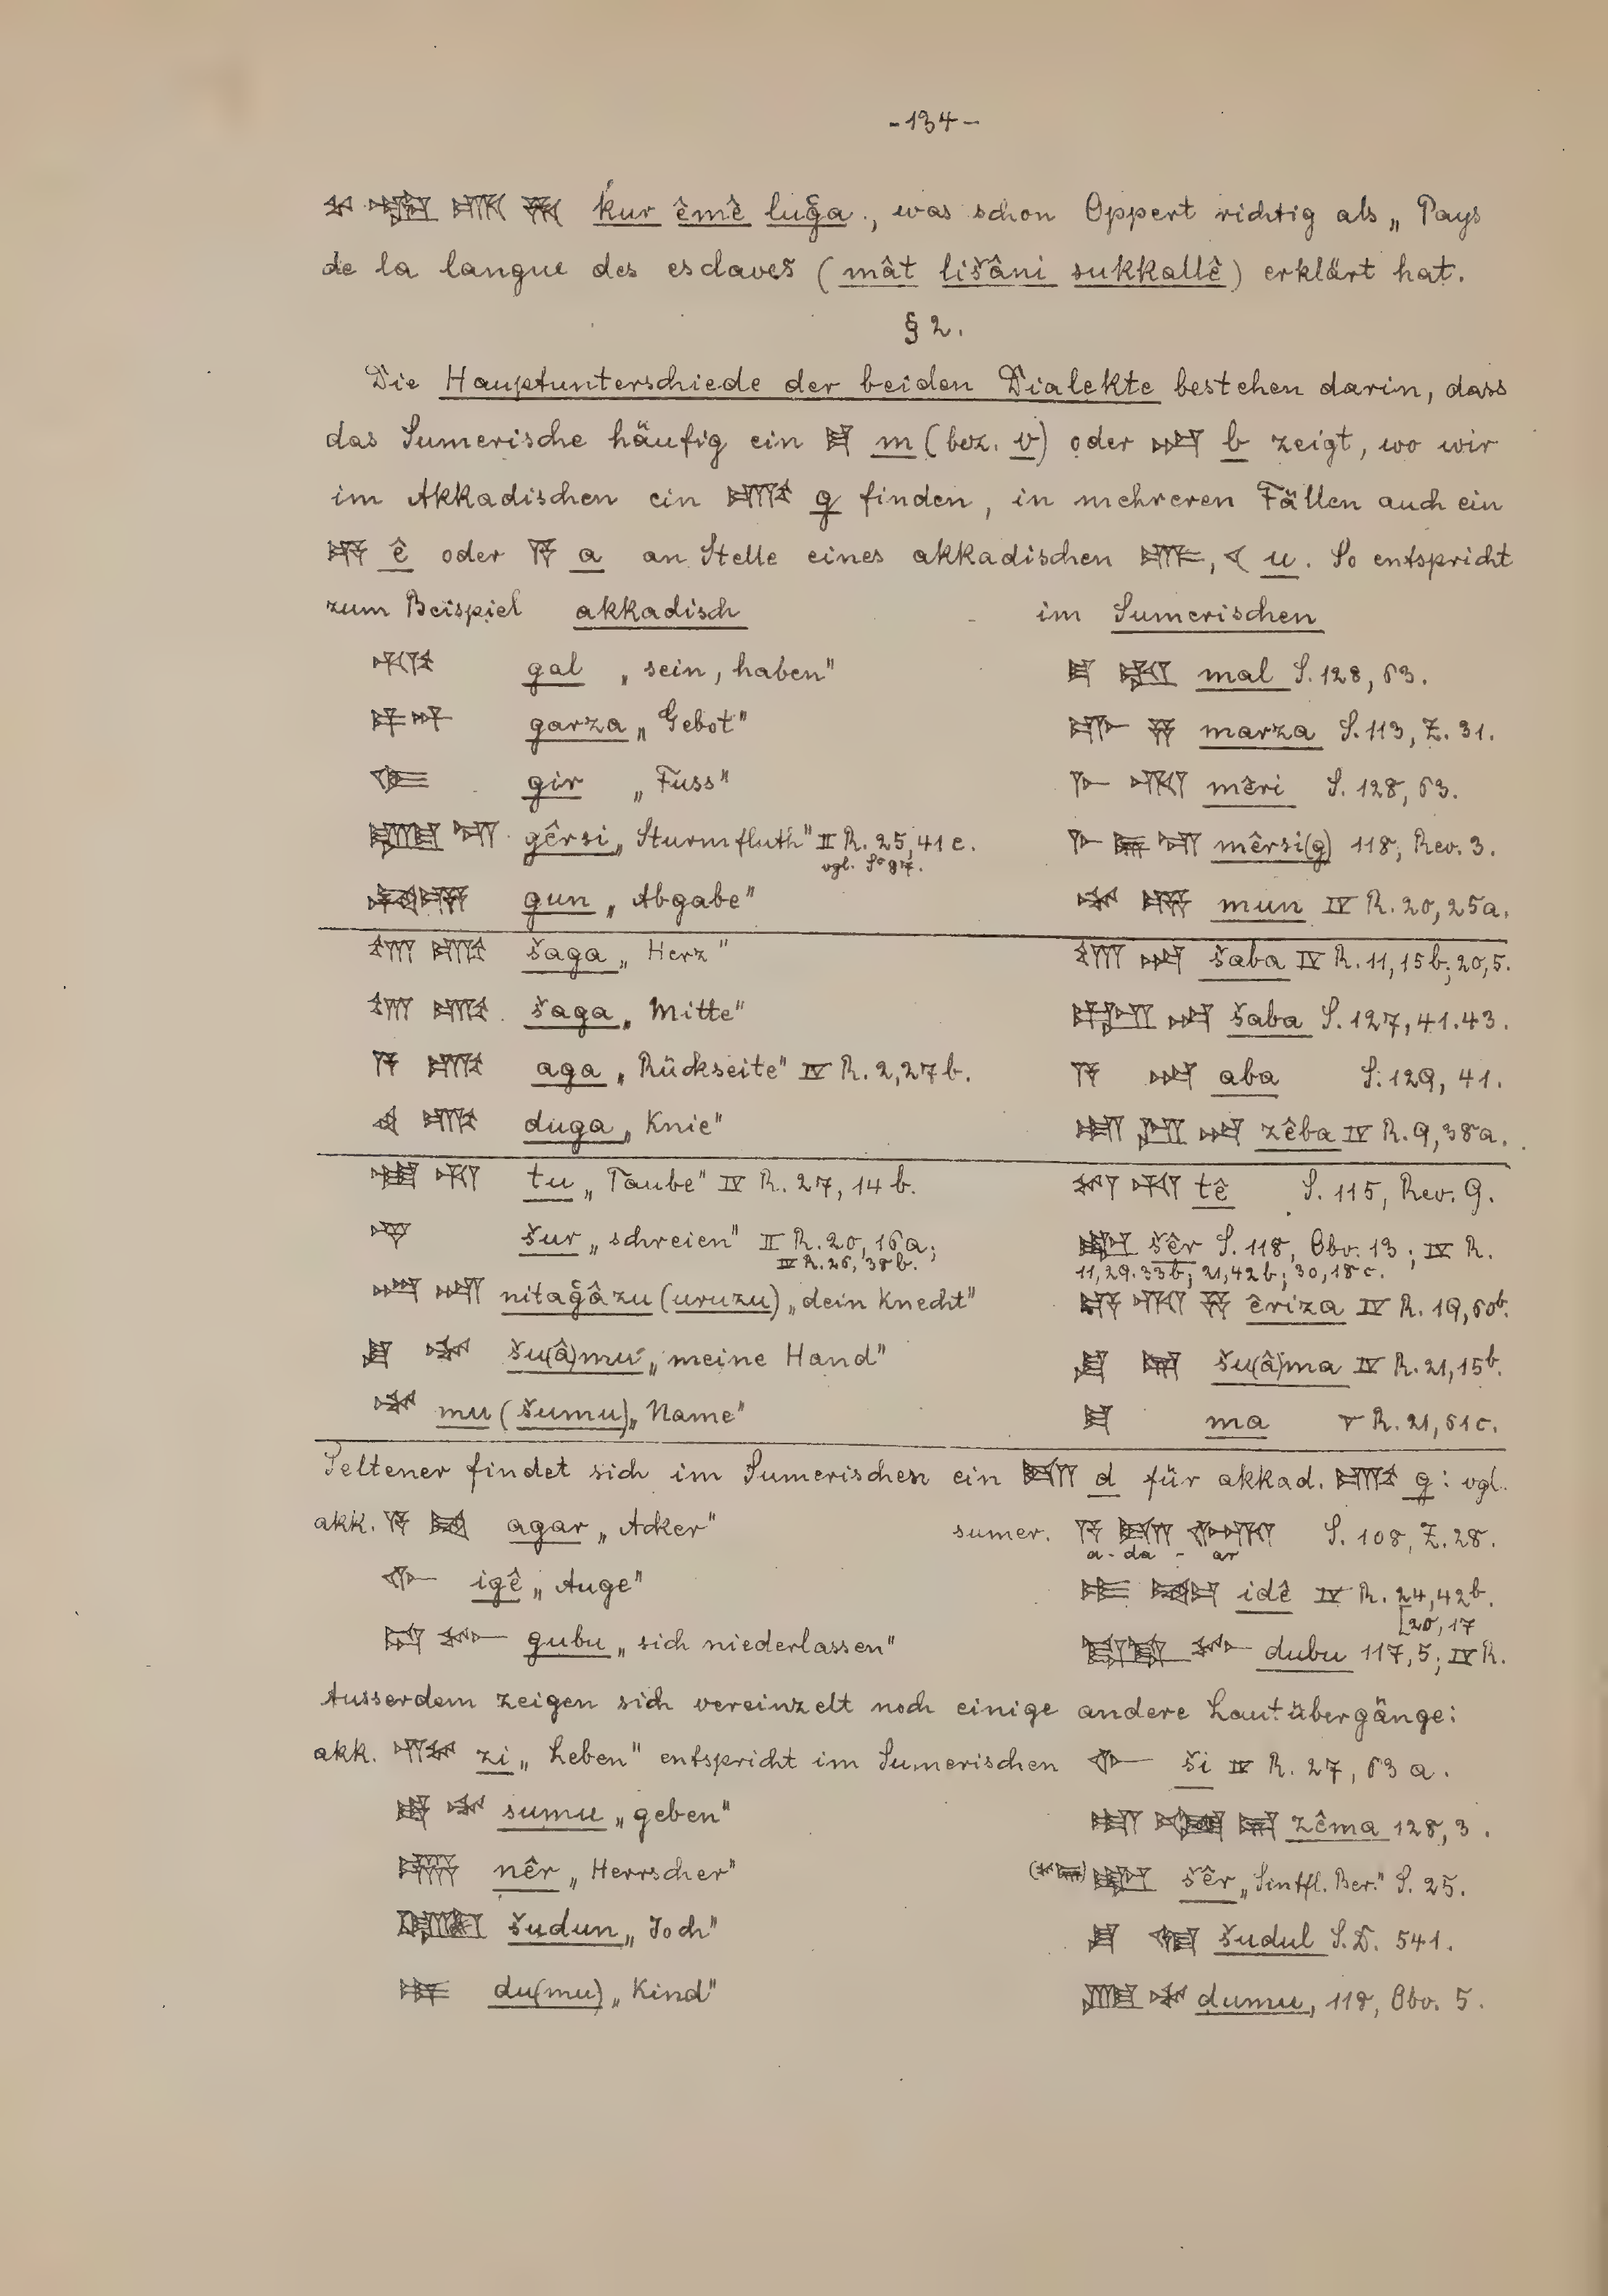 -134-
kur êmê lug̃a, was schon Oppert richtig als „Pays
de la langue des esclaves (mât lišâni sukkallê) erklärt hat.
§ 2.
Die Hauptunterschiede der beiden Dialekte bestehen darin, dass
das Sumerische häufig ein m (bez. v) oder b zeigt, wo wir
im Akkadischen ein g finden, in mehreren Fällen auch ein
ê oder a an Stelle eines akkadischen , u. So entspricht
zum Beispiel akkadisch im Sumerischen
gal „sein, haben" mal S. 128, 63.
garza „Gebot" marza S. 113, Z. 31.
gir „Fuss" mêri S. 128, 63.
gêrsi „Sturmfluth" II R. 25, 41 e. mêrsi(g) 118, Rev. 3.
vgl. Sᶜ 97.
gun „Abgabe" mun IV R. 20, 25a.
šaga „Herz" šaba IV R. 11, 15b; 20, 5.
šaga „Mitte" šaba S. 127, 41. 43.
aga „Rückseite" IV R. 2, 27 b. aba S. 129, 41.
duga „Knie" zêba IV R. 9, 38a.
tu „Taube" IV R. 27, 14 b. tê S. 115, Rev. 9.
šur „schreien" II R. 20, 16a; šêr S. 118, Obv. 13; IV R.
IV R. 26, 38b. 11, 29. 33b; 21, 42b; 30, 18c.
nitag̃âzu (uruzu) „dein Knecht" êriza IV R. 19, 60b.
šu(â)mu „meine Hand" šu(â)ma IV R. 21, 15b.
mu (šumu) „Name" ma V R. 21, 61c.
Seltener findet sich im Sumerischen ein d für akkad. g: vgl.
akk. agar „Acker" sumer. S. 108, Z. 28.
a - da - ar
igê „Auge" idê IV R. 24, 42b.
[20, 17
gubu „sich niederlassen" dubu 117, 5; IV R.
Ausserdem zeigen sich vereinzelt noch einige andere Lautübergänge:
akk. zi „Leben" entspricht im Sumerischen ši IV R. 27, 63 a.
sumu „geben" zêma 128, 3.
nêr „Herrscher" šêr „Sintfl. Ber." S. 25.
šudun „Joch" šudul S. D. 541.
du(mu) „Kind" dumu, 118, Obv. 5.